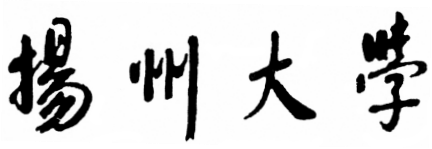 揚州大學